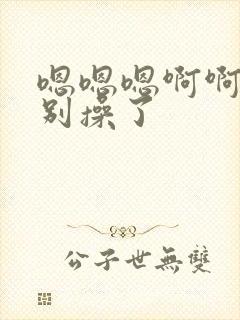 嗯嗯嗯啊啊
别操了
公子世無雙